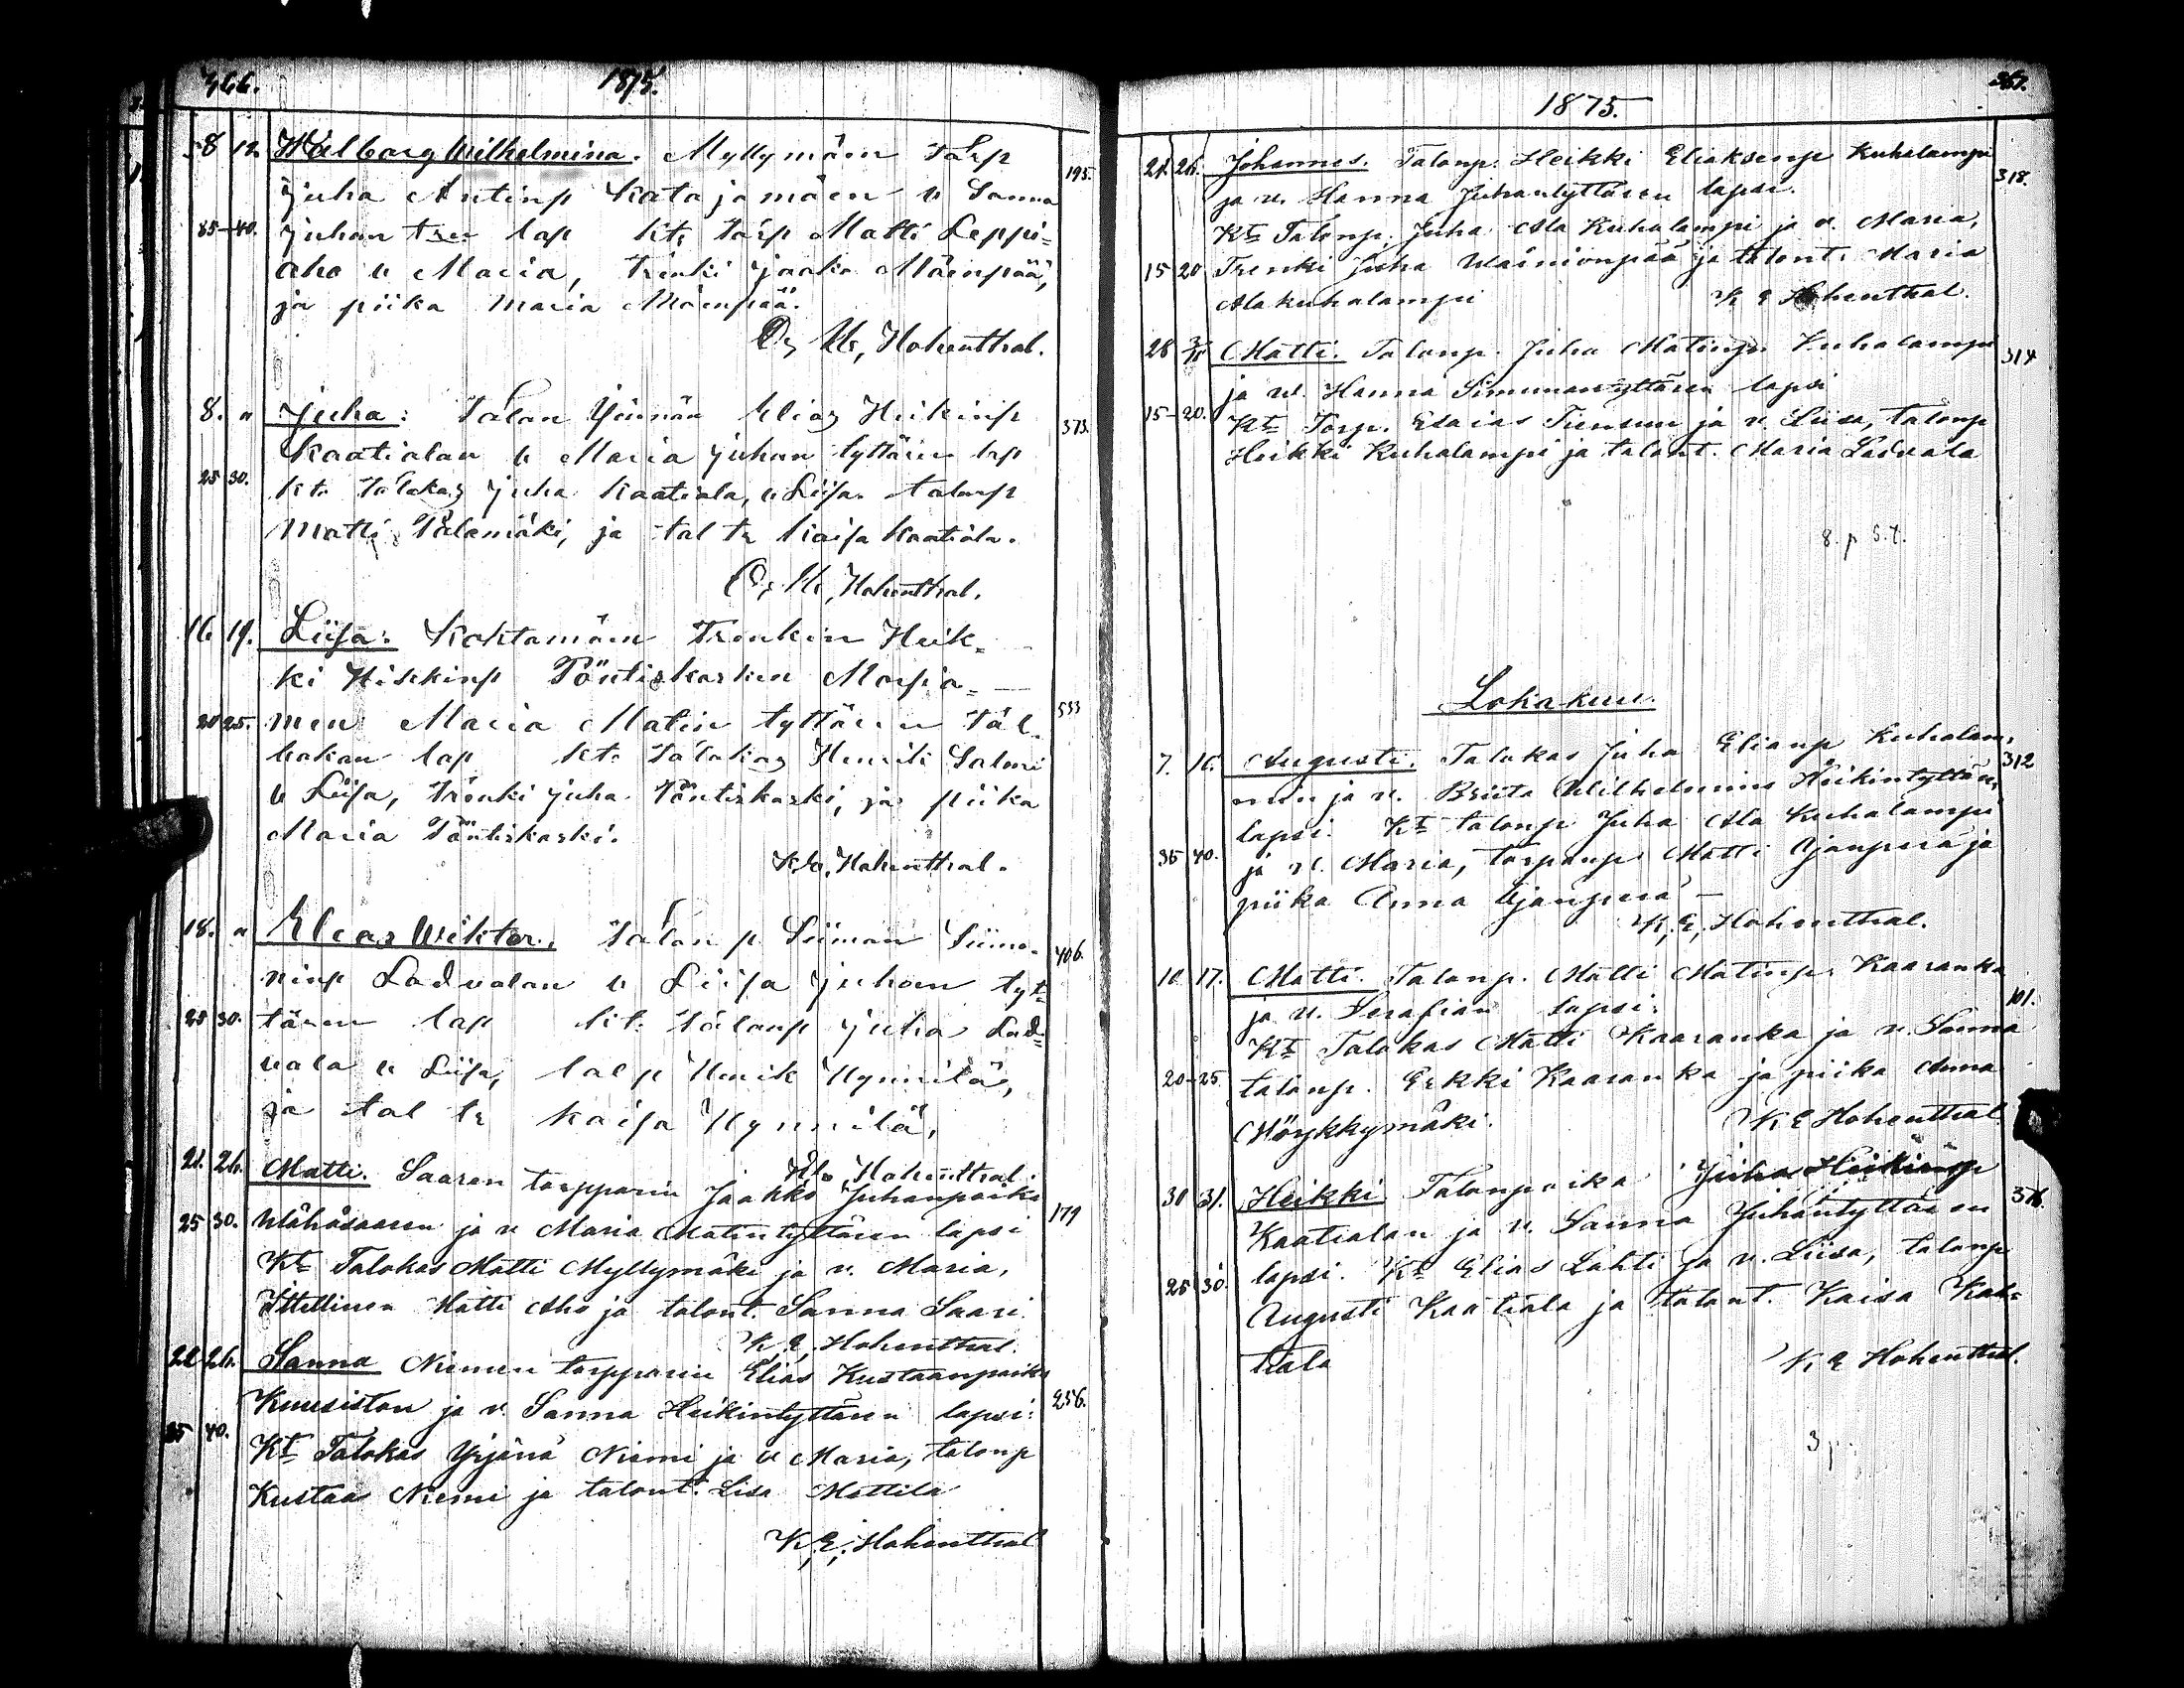 366.
1875.
8 12. Walborg Wilhelmina. Myllymäen Torp
Juha Antinp Katajamäen v Sanna 195.
35-40. Juhan trn lap Kt. Torp Matti Leppi=
aho v Maria, trenki Jaako Mäenpää,
ja piika Maria Mäenpää.
Hohenthal.
8. " Juha: Talon Elias Heikinp
Kaatialan v Maria Juhan tyttären lap 373.
25 30. Kt. Talokas Juha Kaatiala, v Liisa. talonp
Matti Palamäki, ja tal tr Kaisa Kaatiala.
Hohenthal.
16 19. Liisa: Trenkin Heik=
ki Pöntiskosken
20 25. men Maria Matin tyttären 533
lap Kt. Talokas Henrik Salmi
v Liisa, trenki Juha Pöntiskoski, ja piika
Maria Pöntiskoski.
Hohenthal.
18. " Elias Wiktor. Talon p Siiman Siimo-
ninp Ladvalan v Liisa Juhan tyt= 406.
25 30. tären lap Kt. Talonp Juha Lad=
vala v Liisa, talp Henrik Hynnilä,
ja tal tr Kaisa Hynnilä.
Hohenthal
21. 26. Matti. Saaren torpparin Jaakko Juhanpoika
25 30. Wähäsaaren ja v Maria Matintyttären lapsi 179
Kt Talokas Matti Myllymäki ja v. Maria,
Ittellinen Matti Aho ja talont. Sanna Saari.
K, E, Hohenthal.
22 26. Sanna Niemen torpparin Elias Kustaanpoika
Kuusiston ja v. Sanna Heikintyttären lapsi: 256.
35 40. Kt Talokas Yrjänä Niemi ja v Maria, talonp
Kustaa Niemi ja talont. Lisa Mattila
K, E, Hohenthal
367.
1875.
21. 26. Johannes. Talonp. Heikki Eliaksenp Kuhalampi
ja v. Hanna Juhantyttären lapsi. 318.
Kt Talonp. Juha Ala Kuhalampi ja v. Maria,
15 20 Trenki Juha Wäinionpää ja talont. Maria
Alakuhalampi K E Hohenthal.
28 3/10 Matti. Talonp. Juha Matinp. Kuhalampi 314
ja v. Hanna Simunantyttären lapsi
15-20. Kt Torp. Esaias Tiensuu ja v. Liisa, talonp
Heikki Kuhalampi ja talont. Maria Ladvala
8. p 5. t.
Lokakuu.
7. 10. Augusti. Talokas Juha Elianp Kuhalam, 312
min ja v. Briita Wilhelmina Heikintyttären,
lapsi. Kt talonp Juha Ala Kuhalampi
35 40. ja v. Maria, torpanp Matti Ojanperä ja
piika Anna Ojanperä -
K, E, Hohenthal.
10 17. Matti. Talonp. Matti Matinp. Kaaranka
ja v. Serafian lapsi. 101.
Kt Talokas Matti Kaaranka ja v. Sanna
20-25. talonp. Erkki Kaaranka ja piika Anna
Mörykkymäki. K E Hohenthal
30 31. Heikki Talonpoika Juha Heikinp
Kaatialan ja v. Sanna Juhantyttären
lapsi. Kt Elias Lahti ja v. Liisa, talonp
25 30. Augusti Kaatiala ja talont. Kaisa Kaa=
tiala K E Hohenthal.
3 p